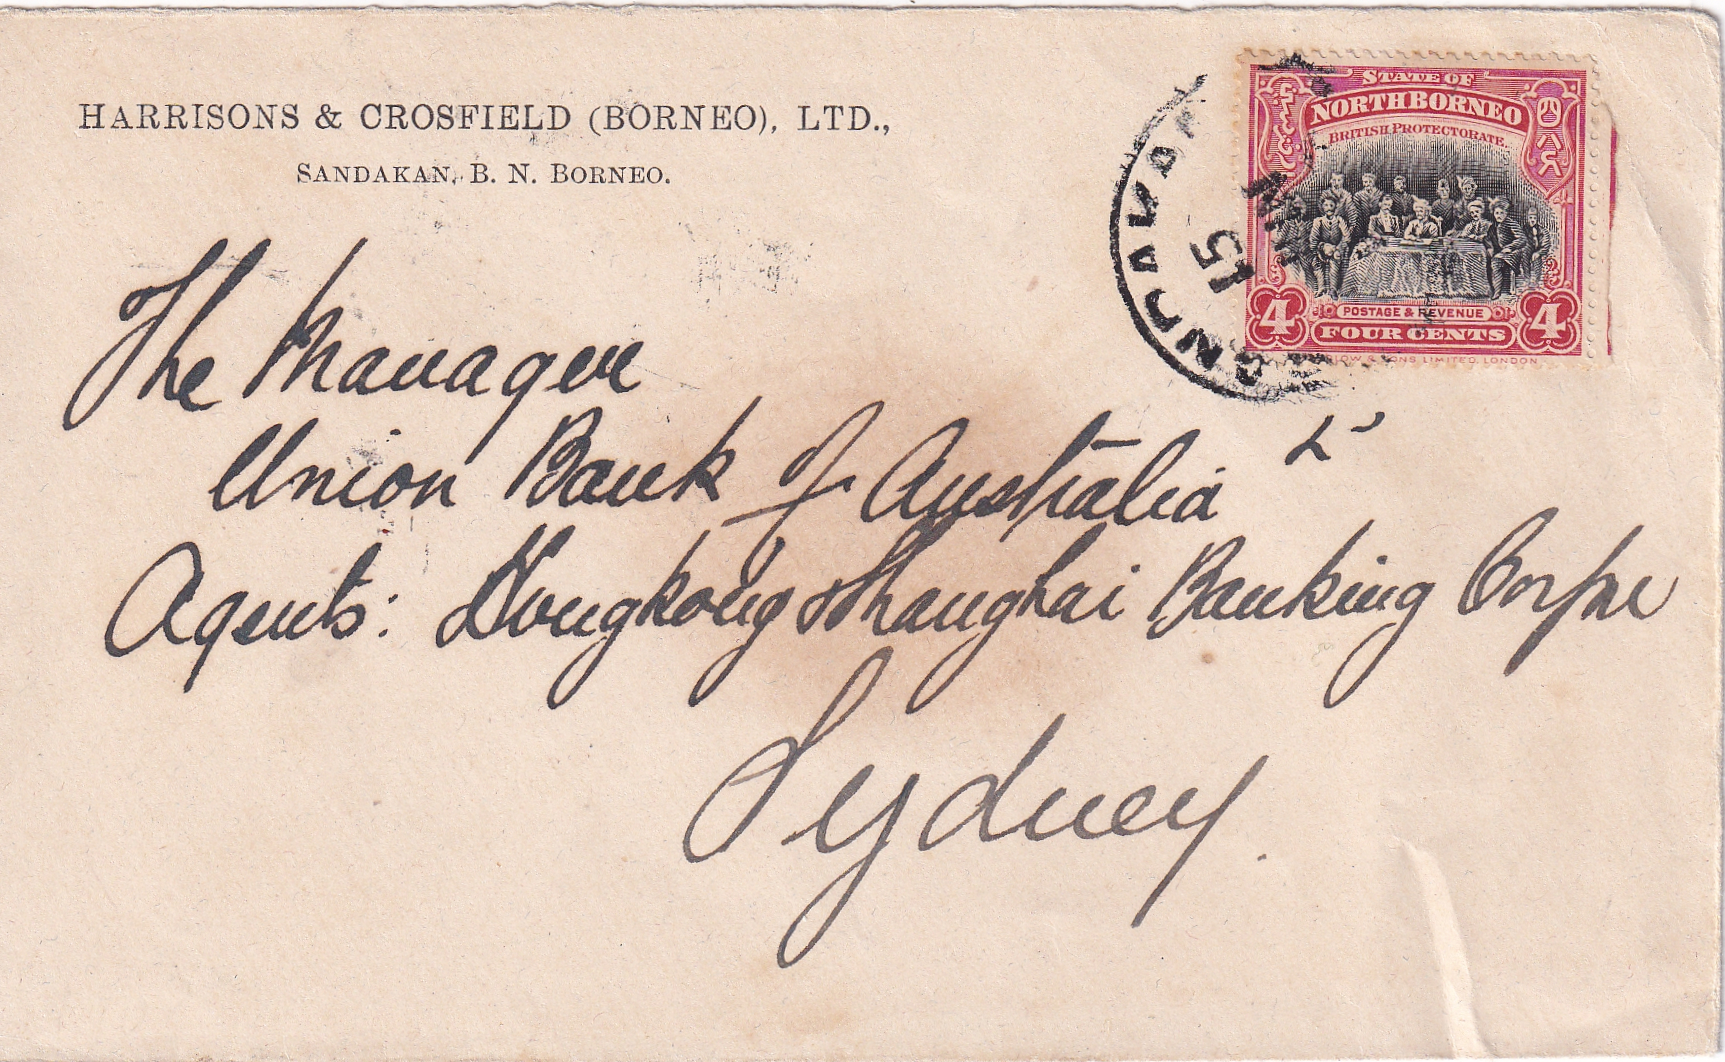 HARRISONS & CROSFIELD (BORNEO), LTD.,
SANDAKAN, B. N. BORNEO.
STATE OF
NORTH BORNEO
BRITISH PROTECTORATE.
4 POSTAGE & REVENUE 4
FOUR CENTS
SONS LIMITED, LONDON
SANDAKAN
15
The Manager
Union Bank of Australia L
Agents: Hongkong Shanghai Banking Corpn
Sydney.